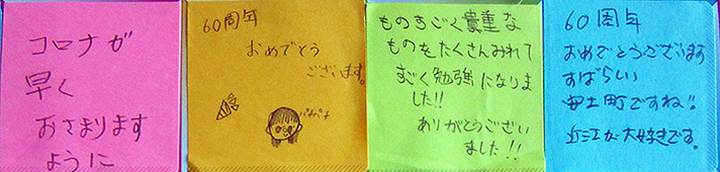 コロナが
早く
おさまります
ように
60周年
おめでとう
ございます。
パチパチ
ものすごく貴重な
ものをたくさんみれて
すごく勉強になりま
した!!
ありがとうござい
ました!!
60周年
おめでとうございます
すばらしい
安土町ですね!!
近江が大好きです。